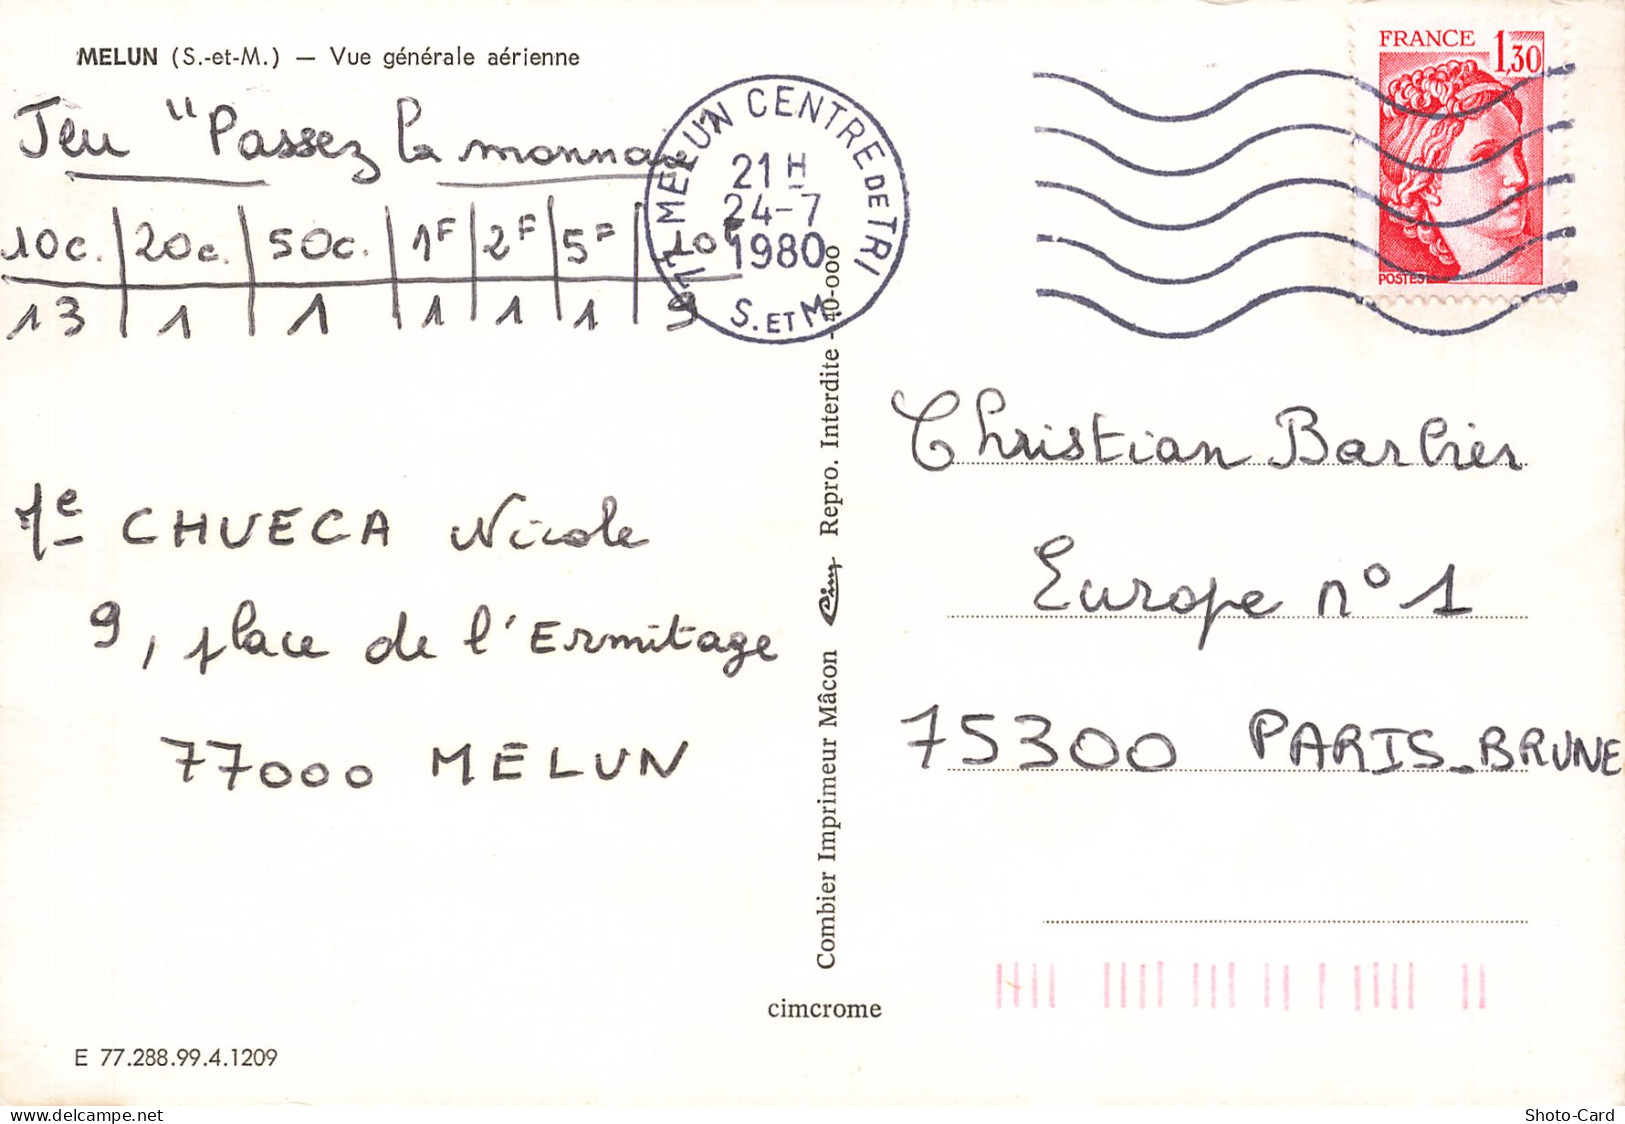 MELUN (S.-et-M.) — Vue générale aérienne
Jeu "Passez la monnaie"
10c. 20c. 50c. 1F 2F 5F 10F
13 1 1 1 1 1 9
Me CHUECA Nicole
9, place de l'Ermitage
77000 MELUN
77 MELUN CENTRE DE TRI
21 H
24-7
1980
S. ET M.
FRANCE 1,30
POSTES
Christian Barbier
Europe n° 1
75300 PARIS-BRUNE
Combier Imprimeur Mâcon Cim Repro. Interdite - 40-000
cimcrome
E 77.288.99.4.1209
Shoto-Card
www.delcampe.net